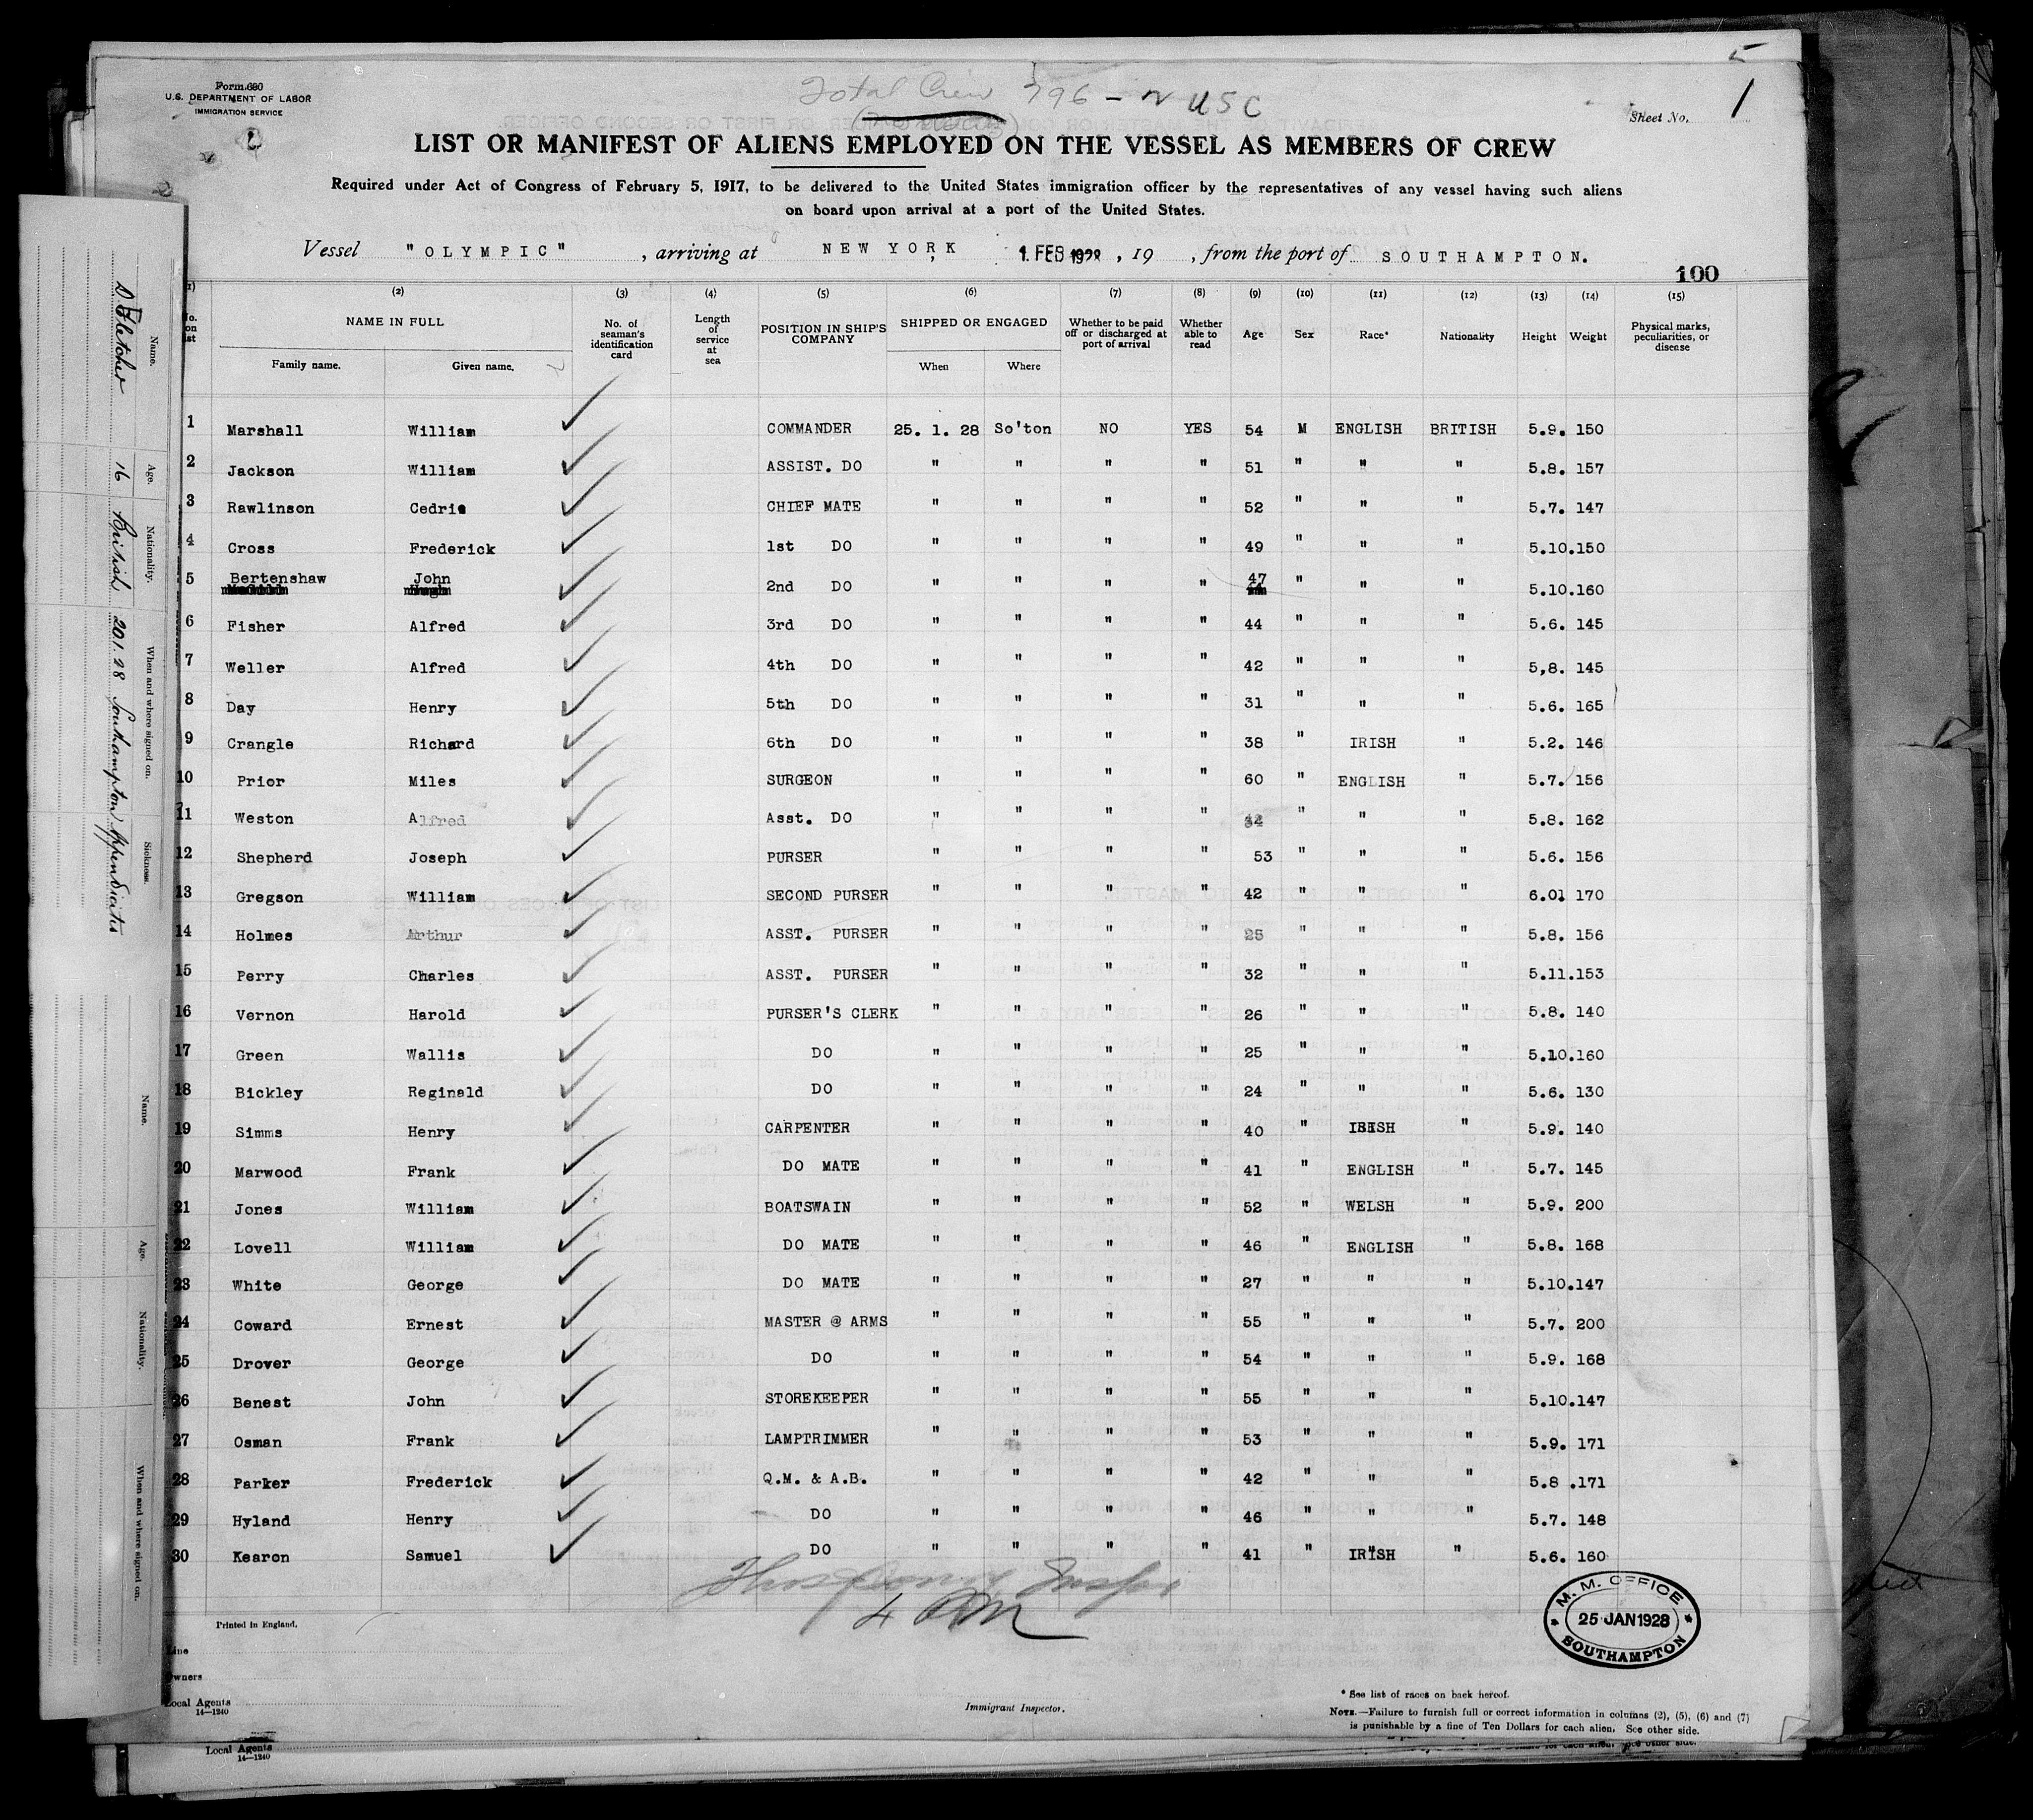 5
Form 680
U.S. DEPARTMENT OF LABOR
IMMIGRATION SERVICE
Total Crew 796 - 2 USC
Sheet No. 1
LIST OR MANIFEST OF ALIENS EMPLOYED ON THE VESSEL AS MEMBERS OF CREW
Required under Act of Congress of February 5, 1917, to be delivered to the United States immigration officer by the representatives of any vessel having such aliens
on board upon arrival at a port of the United States.
Vessel "OLYMPIC", arriving at NEW YORK, 1 FEB 1928, 19 , from the port of SOUTHAMPTON.
100
(1) (2) (3) (4) (5) (6) (7) (8) (9) (10) (11) (12) (13) (14) (15)
No. on list NAME IN FULL Family name. Given name. No. of seaman's identification card Length of service at sea POSITION IN SHIP'S COMPANY SHIPPED OR ENGAGED When Where Whether to be paid off or discharged at port of arrival Whether able to read Age Sex Race* Nationality Height Weight Physical marks, peculiarities, or disease
1 Marshall William COMMANDER 25. 1. 28 So'ton NO YES 54 M ENGLISH BRITISH 5.9. 150
2 Jackson William ASSIST. DO " " " " 51 " " " 5.8. 157
3 Rawlinson Cedric CHIEF MATE " " " " 52 " " " 5.7. 147
4 Cross Frederick 1st DO " " " " 49 " " " 5.10.150
5 Bertenshaw John 2nd DO " " " " 47 " " " 5.10.160
6 Fisher Alfred 3rd DO " " " " 44 " " " 5.6. 145
7 Weller Alfred 4th DO " " " " 42 " " " 5,8. 145
8 Day Henry 5th DO " " " " 31 " " " 5.6. 165
9 Crangle Richard 6th DO " " " " 38 " IRISH " 5.2. 146
10 Prior Miles SURGEON " " " " 60 " ENGLISH " 5.7. 156
11 Weston Alfred Asst. DO " " " " " " " 5.8. 162
12 Shepherd Joseph PURSER " " " " 53 " " " 5.6. 156
13 Gregson William SECOND PURSER " " " " 42 " " " 6.01 170
14 Holmes Arthur ASST. PURSER " " " " 25 " " " 5.8. 156
15 Perry Charles ASST. PURSER " " " " 32 " " " 5.11.153
16 Vernon Harold PURSER'S CLERK " " " " 26 " " " 5.8. 140
17 Green Wallis DO " " " " 25 " " " 5.10.160
18 Bickley Reginald DO " " " " 24 " " " 5.6. 130
19 Simms Henry CARPENTER " " " " 40 " IRISH " 5.9. 140
20 Marwood Frank DO MATE " " " " 41 " ENGLISH " 5.7. 145
21 Jones William BOATSWAIN " " " " 52 " WELSH " 5.9. 200
22 Lovell William DO MATE " " " " 46 " ENGLISH " 5.8. 168
23 White George DO MATE " " " " 27 " " " 5.10.147
24 Coward Ernest MASTER @ ARMS " " " " 55 " " " 5.7. 200
25 Drover George DO " " " " 54 " " " 5.9. 168
26 Benest John STOREKEEPER " " " " 55 " " " 5.10.147
27 Osman Frank LAMPTRIMMER " " " " 53 " " " 5.9. 171
28 Parker Frederick Q.M. & A.B. " " " " 42 " " " 5.8 .171
29 Hyland Henry DO " " " " 46 " " " 5.7. 148
30 Kearon Samuel DO " " " " 41 " IRISH " 5.6. 160
M. M. OFFICE
25 JAN 1928
SOUTHAMPTON
Printed in England.
Line
Owners
Local Agents
14—1240
Immigrant Inspector.
* See list of races on back hereof.
NOTE.—Failure to furnish full or correct information in columns (2), (5), (6) and (7)
is punishable by a fine of Ten Dollars for each alien. See other side.
Local Agents
14—1240
Name. Age. Nationality. When and where signed on. Sickness.
D. Fletcher 16 British 20.1.28 Southampton Appendicitis
Name. Age. Nationality. When and where signed on.